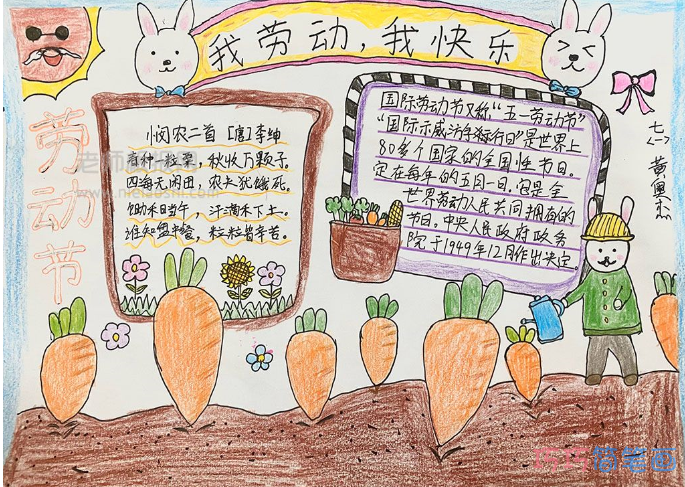 我劳动，我快乐
劳动节
悯农二首 [唐]李绅
春种一粒粟，秋收万颗子。
四海无闲田，农夫犹饿死。
锄禾日当午，汗滴禾下土。
谁知盘中餐，粒粒皆辛苦。
国际劳动节又称“五一劳动节”
“国际示威游行日”是世界上
80多个国家的全国性节日。
定在每年的五月一日。它是全
世界劳动人民共同拥有的
节日。中央人民政府政务
院于1949年12月作出决定.
七(一)黄
巧巧简笔画